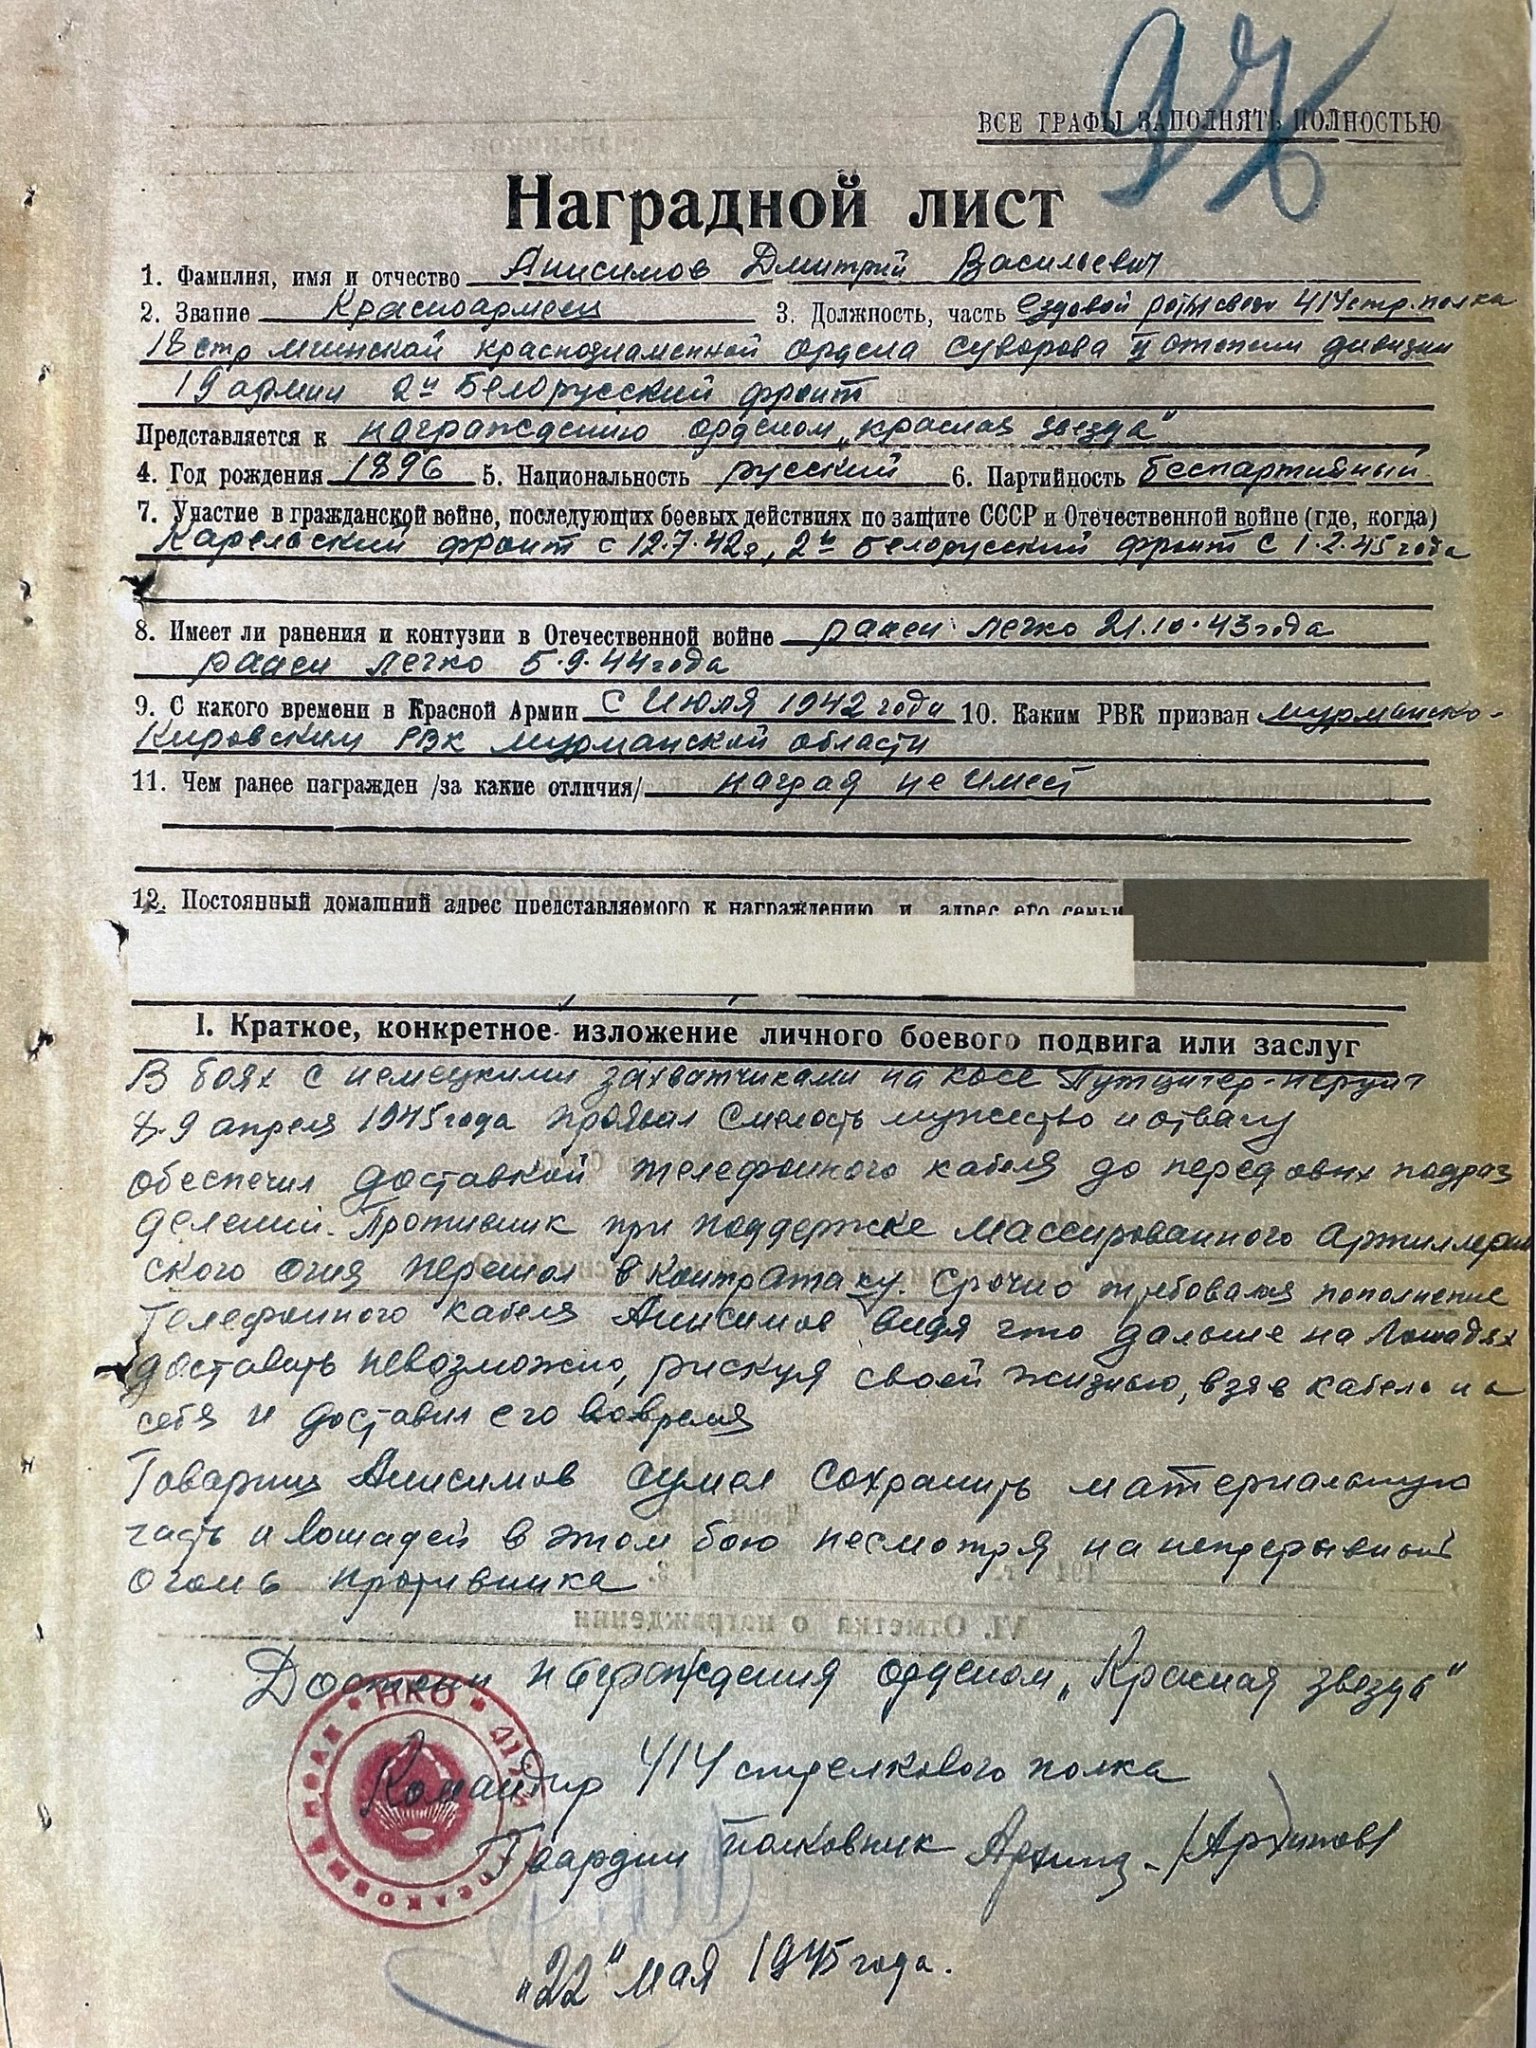 ВСЕ ГРАФЫ ЗАПОЛНЯТЬ ПОЛНОСТЬЮ
Наградной лист
1. Фамилия, имя и отчество Анисимов Дмитрий Васильевич
2. Звание Красноармеец 3. Должность, часть Ездовой роты связи 414 стр. полка
18 стр мгинской краснознаменной ордена Суворова II степени дивизии
19 армии 2й Белорусский фронт
Представляется к награждению орденом „красная звезда"
4. Год рождения 1896 5. Национальность русский 6. Партийность беспартийный
7. Участие в гражданской войне, последующих боевых действиях по защите СССР и Отечественной войне (где, когда)
Карельский фронт с 12.7.42г, 2й Белорусский фронт с 1.2.45 года
8. Имеет ли ранения и контузии в Отечественной войне ранен легко 21.10.43 года
ранен легко 5.9.44 года
9. С какого времени в Красной Армии с Июля 1942 года 10. Каким РВК призван мурманско-
Кировским РВК мурманской области
11. Чем ранее награжден /за какие отличия/ наград не имеет
12. Постоянный домашний адрес представляемого к награждению и адрес его семьи
I. Краткое, конкретное изложение личного боевого подвига или заслуг
В боях с немецкими захватчиками на косе
8-9 апреля 1945 года проявил смелость мужество и отвагу
обеспечил доставкой телефонного кабеля до передовых подраз
делений. Противник при поддержке массированного артиллерий
ского огня перешол в контратаку. Срочно требовался пополнение
Телефонного кабеля Анисимов видя что дальше на лошадях
доставить невозможно, рискуя своей жизнью, взяв кабель на
себя и доставил его вовремя
Товарищ Анисимов сумел сохранить материальную
часть и лошадей в этом бою несмотря на непрерывный
огонь противника
Достоин награждения орденом „Красная звезда"
Командир 414 стрелкового полка
Гвардии полковник /Архипов/
„22" мая 1945 года.
НКО
VI. Отметка о награждении